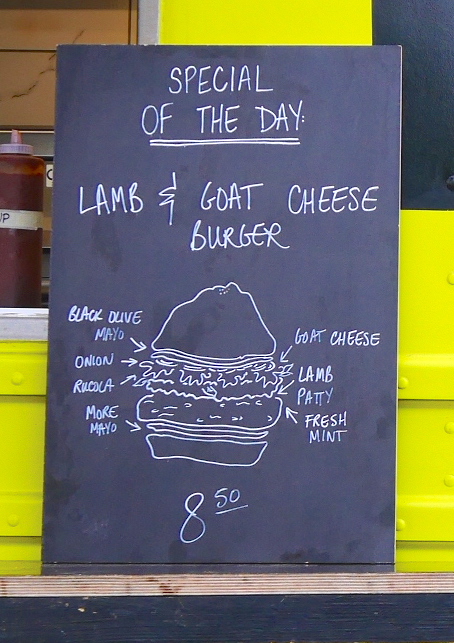 SPECIAL
OF THE DAY:
LAMB & GOAT CHEESE
BURGER
BLACK OLIVE
MAYO
GOAT CHEESE
ONION
RUCOLA
LAMB
PATTY
MORE
MAYO
FRESH
MINT
8 50